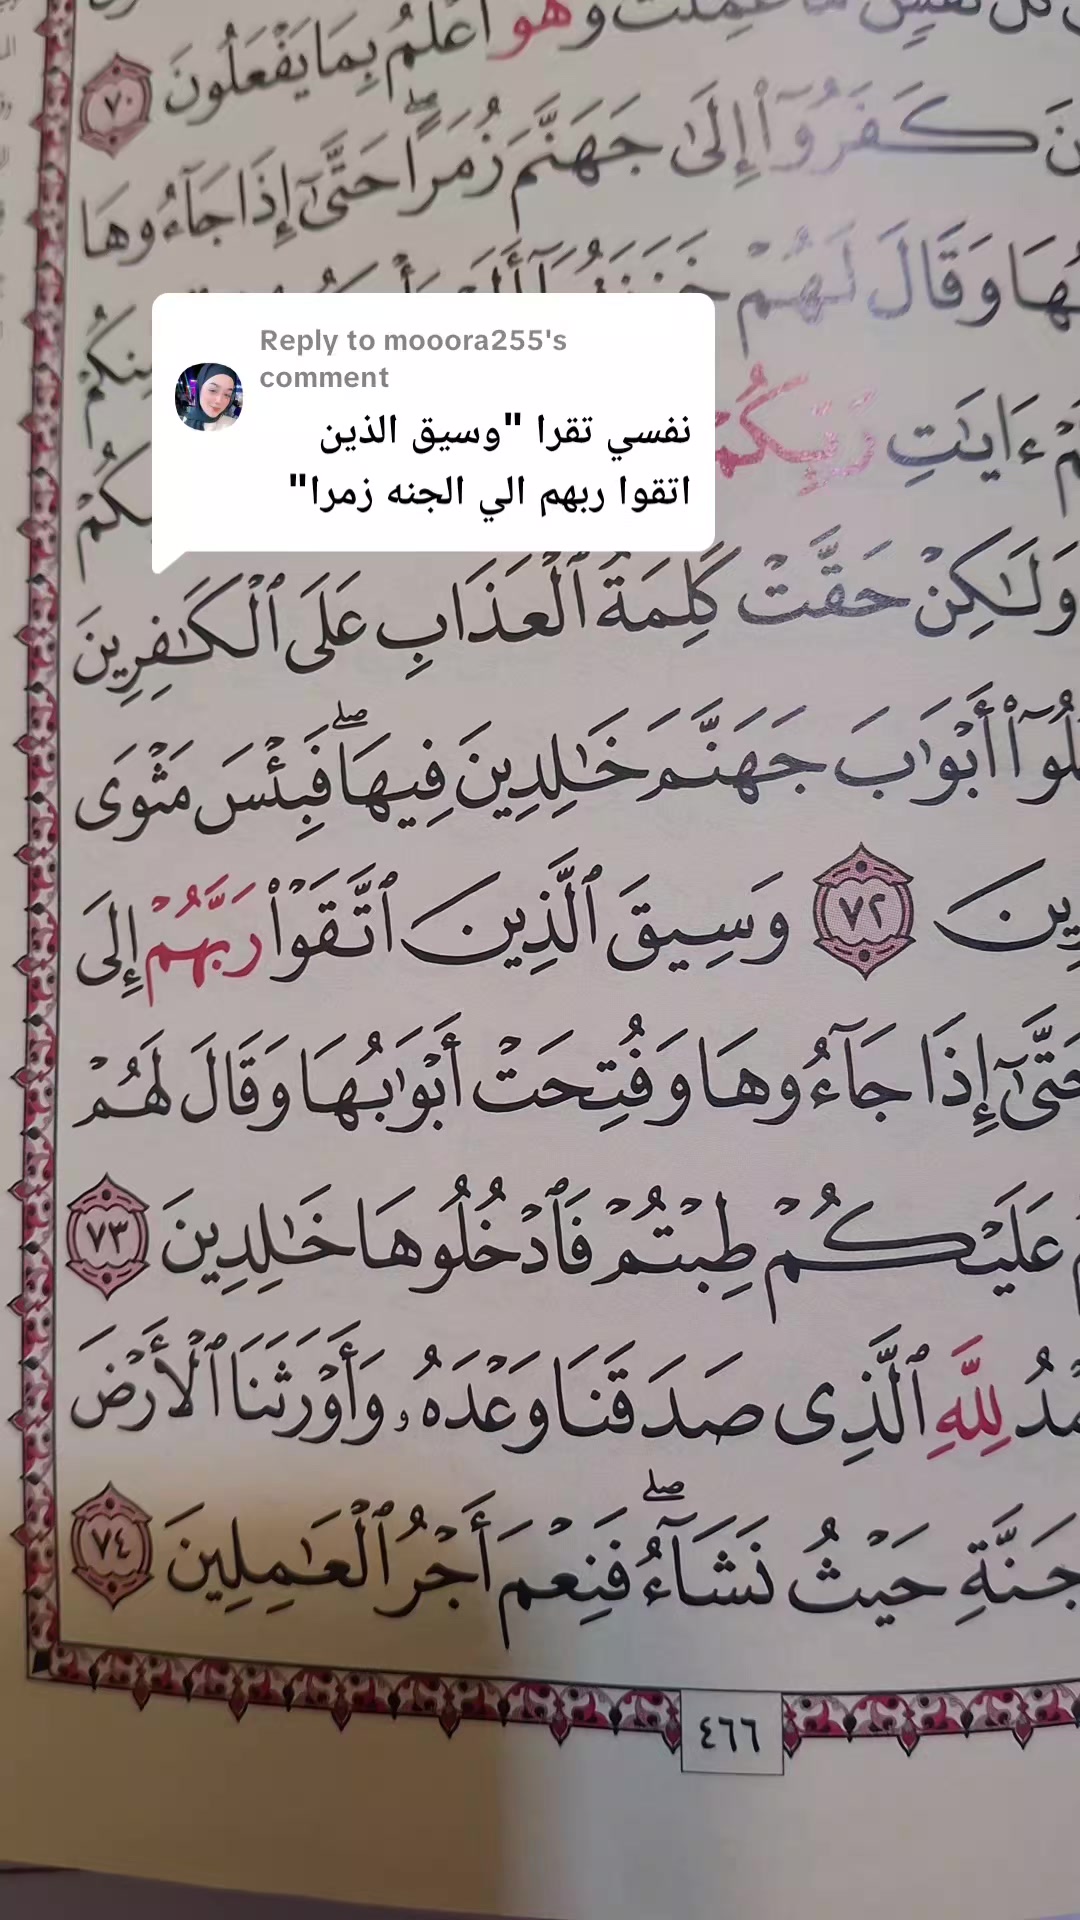 كل نفس ما عملت وهو أعلم بما يفعلون ٧٠
كَفَرُوٓا۟ إِلَىٰ جَهَنَّمَ زُمَرًا ۖ حَتَّىٰٓ إِذَا جَآءُوهَا
وَقَالَ لَهُمْ
مِنكُمْ
Reply to mooora255's
comment
نفسي تقرا "وسيق الذين
اتقوا ربهم الي الجنه زمرا"
ءَايَٰتِ رَبِّكُمْ
وَلَٰكِنْ حَقَّتْ كَلِمَةُ ٱلْعَذَابِ عَلَى ٱلْكَٰفِرِينَ
أَبْوَٰبَ جَهَنَّمَ خَٰلِدِينَ فِيهَا ۖ فَبِئْسَ مَثْوَى
٧٢ وَسِيقَ ٱلَّذِينَ ٱتَّقَوْا۟ رَبَّهُمْ إِلَى
حَتَّىٰٓ إِذَا جَآءُوهَا وَفُتِحَتْ أَبْوَٰبُهَا وَقَالَ لَهُمْ
عَلَيْكُمْ طِبْتُمْ فَٱدْخُلُوهَا خَٰلِدِينَ ٧٣
لِلَّهِ ٱلَّذِى صَدَقَنَا وَعْدَهُۥ وَأَوْرَثَنَا ٱلْأَرْضَ
حَيْثُ نَشَآءُ ۖ فَنِعْمَ أَجْرُ ٱلْعَٰمِلِينَ ٧٤
٤٦٦